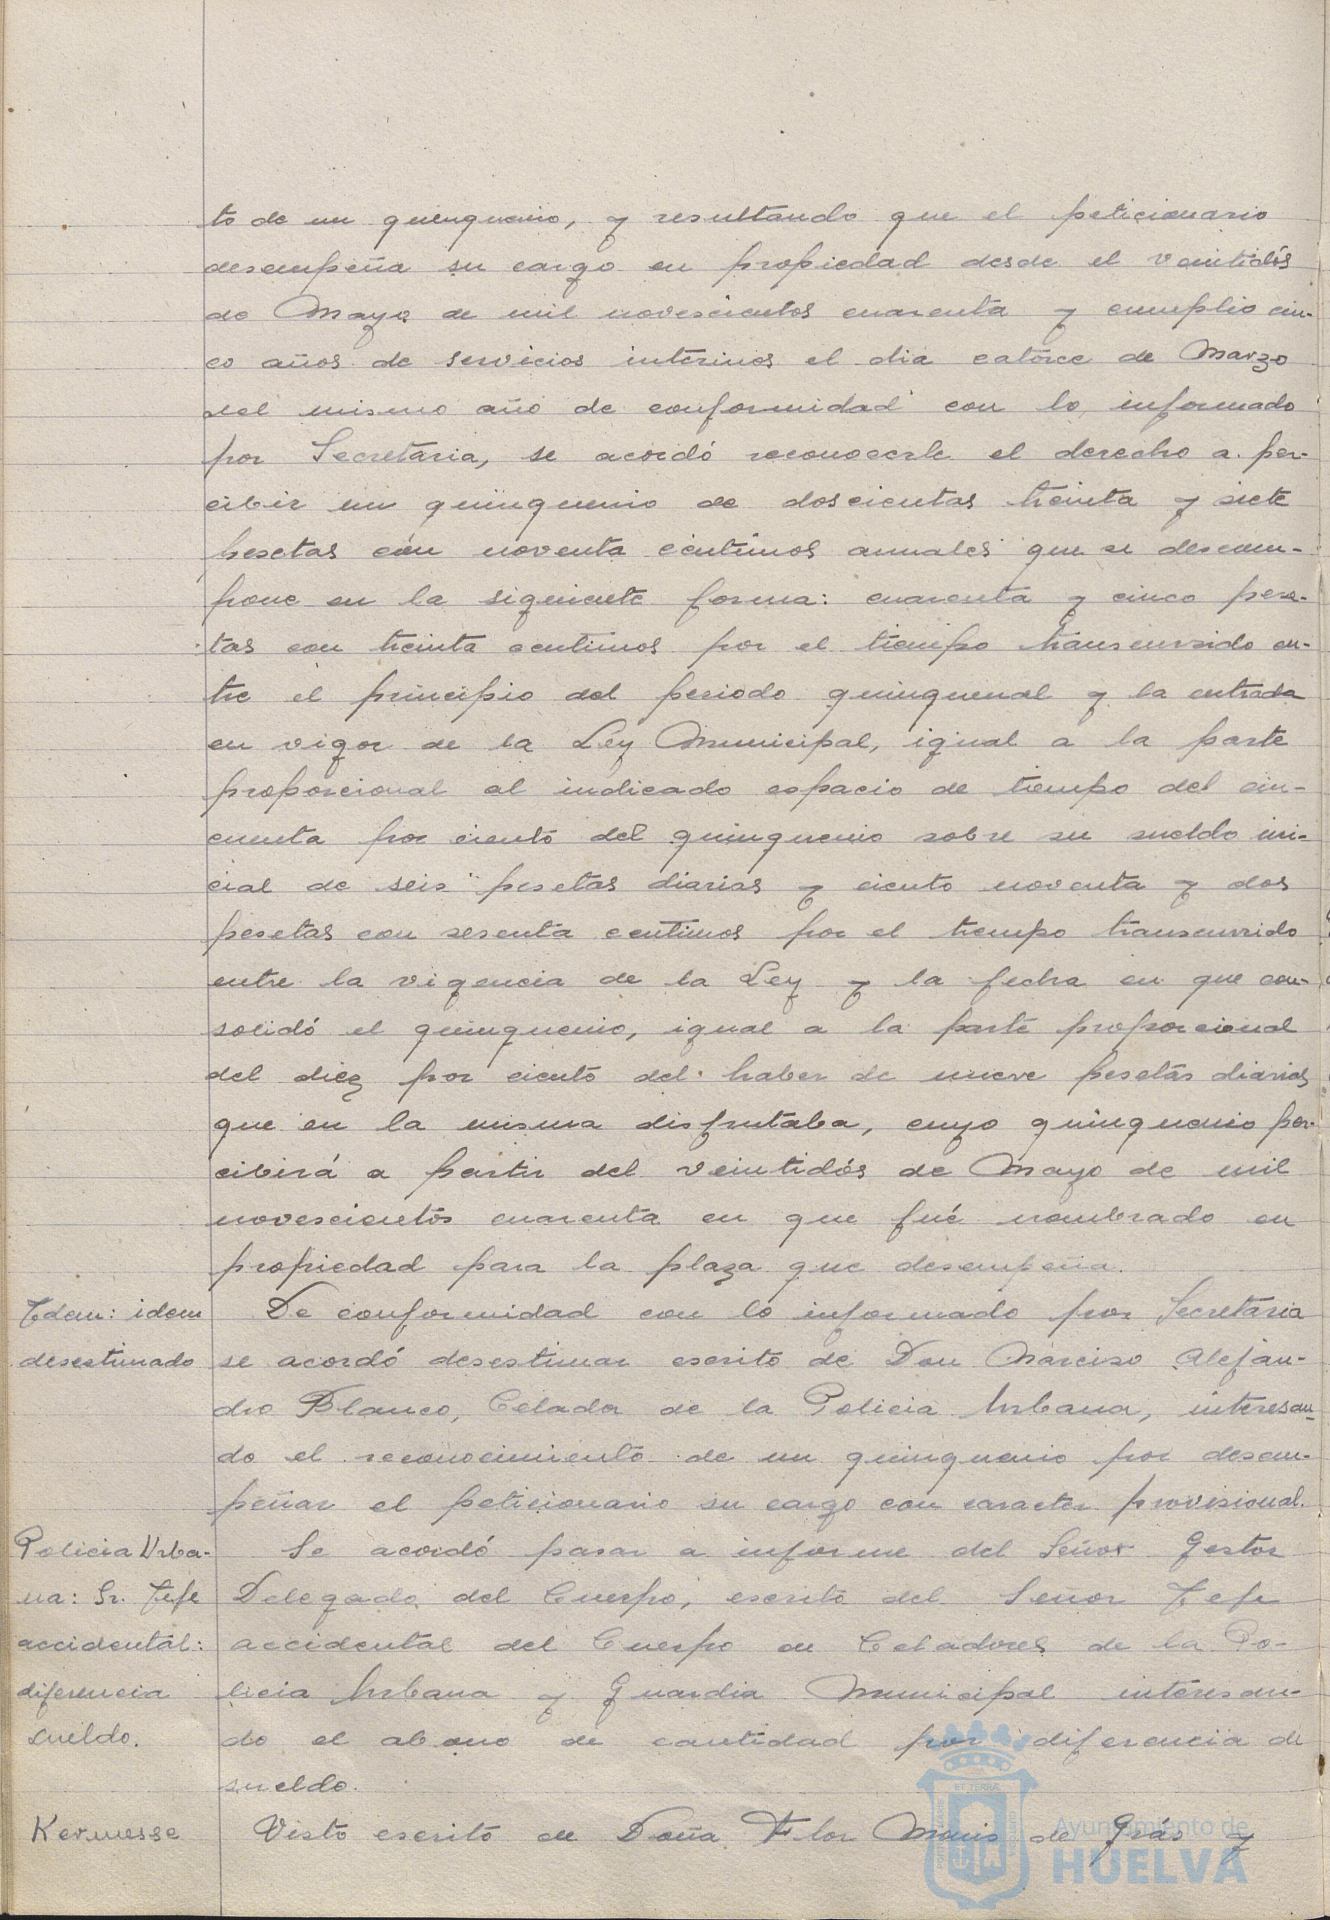 to de un quinquenio, y resultando que el peticionario
desempeña su cargo en propiedad desde el veintidós
de Mayo de mil novescientos cuarenta y cumplio cin-
co años de servicios interinos el dia catorce de Marzo
del mismo año de conformidad con lo informado
por Secretaria, se acordó reconocerle el derecho a per-
cibir un quinquenio de doscientas treinta y siete
pesetas con noventa centimos anuales que se descom-
pone en la siguiente forma: cuarenta y cinco pese-
tas con treinta centimos por el tiempo transcurrido en-
tre el principio del periodo quinquenal y la entrada
en vigor de la Ley Municipal, igual a la parte
proporcional al indicado espacio de tiempo del cin-
cuenta por ciento del quinquenio sobre su sueldo ini-
cial de seis pesetas diarias y ciento noventa y dos
pesetas con sesenta centimos por el tiempo transcurrido
entre la vigencia de la Ley y la fecha en que con-
solidó el quinquenio, igual a la parte proporcional
del diez por ciento del haber de nueve pesetas diarias
que en la misma disfrutaba, cuyo quinquenio per-
cibirá a partir del veintidós de Mayo de mil
novescientos cuarenta en que fué nombrado en
propiedad para la plaza que desempeña.
Idem: idem
desestimado
De conformidad con lo informado por Secretaria
se acordó desestimar escrito de Don Narciso Alejan-
dro Blanco, Celador de la Policia Urbana, interesan-
do el reconocimiento de un quinquenio por desem-
peñar el peticionario su cargo con caracter provisional.
Policia Urba-
na: Sr. Jefe
accidental:
diferencia
sueldo.
Se acordó pasar a informe del Señor Gestor
Delegado del Cuerpo, escrito del Señor Jefe
accidental del Cuerpo de Celadores de la Po-
licia Urbana y Guardia Municipal interesan-
do el abono de cantidad por diferencia de
sueldo.
Kermesse
Visto escrito de Doña Flor Muis de Grás y
Ayuntamiento de
HUELVA